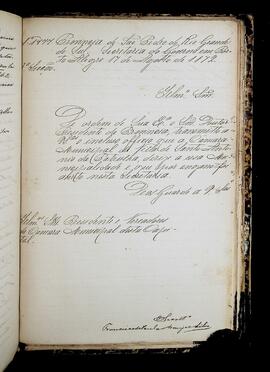 N. 1844 Provincia de São Pedro do Rio Grande
do Sul. Secretaria do Governo em Por-
to Alegre 17 de Agosto de 1872.
Illmos Snrs
De ordem de Sua Exa o Snr Doutor
Presidente da Provincia, transmitto a
V.Sas o incluso officio que a Camara
Municipal da Villa de Santo Anto-
nio da Patrulha dirige a essa Mu-
nicipalidade, e que fora
aberto nesta Secretaria.
Deos Guarde a V. Sas
Illmos Snrs Presidente e Vereadores
da Camara Municipal desta Capi-
tal.